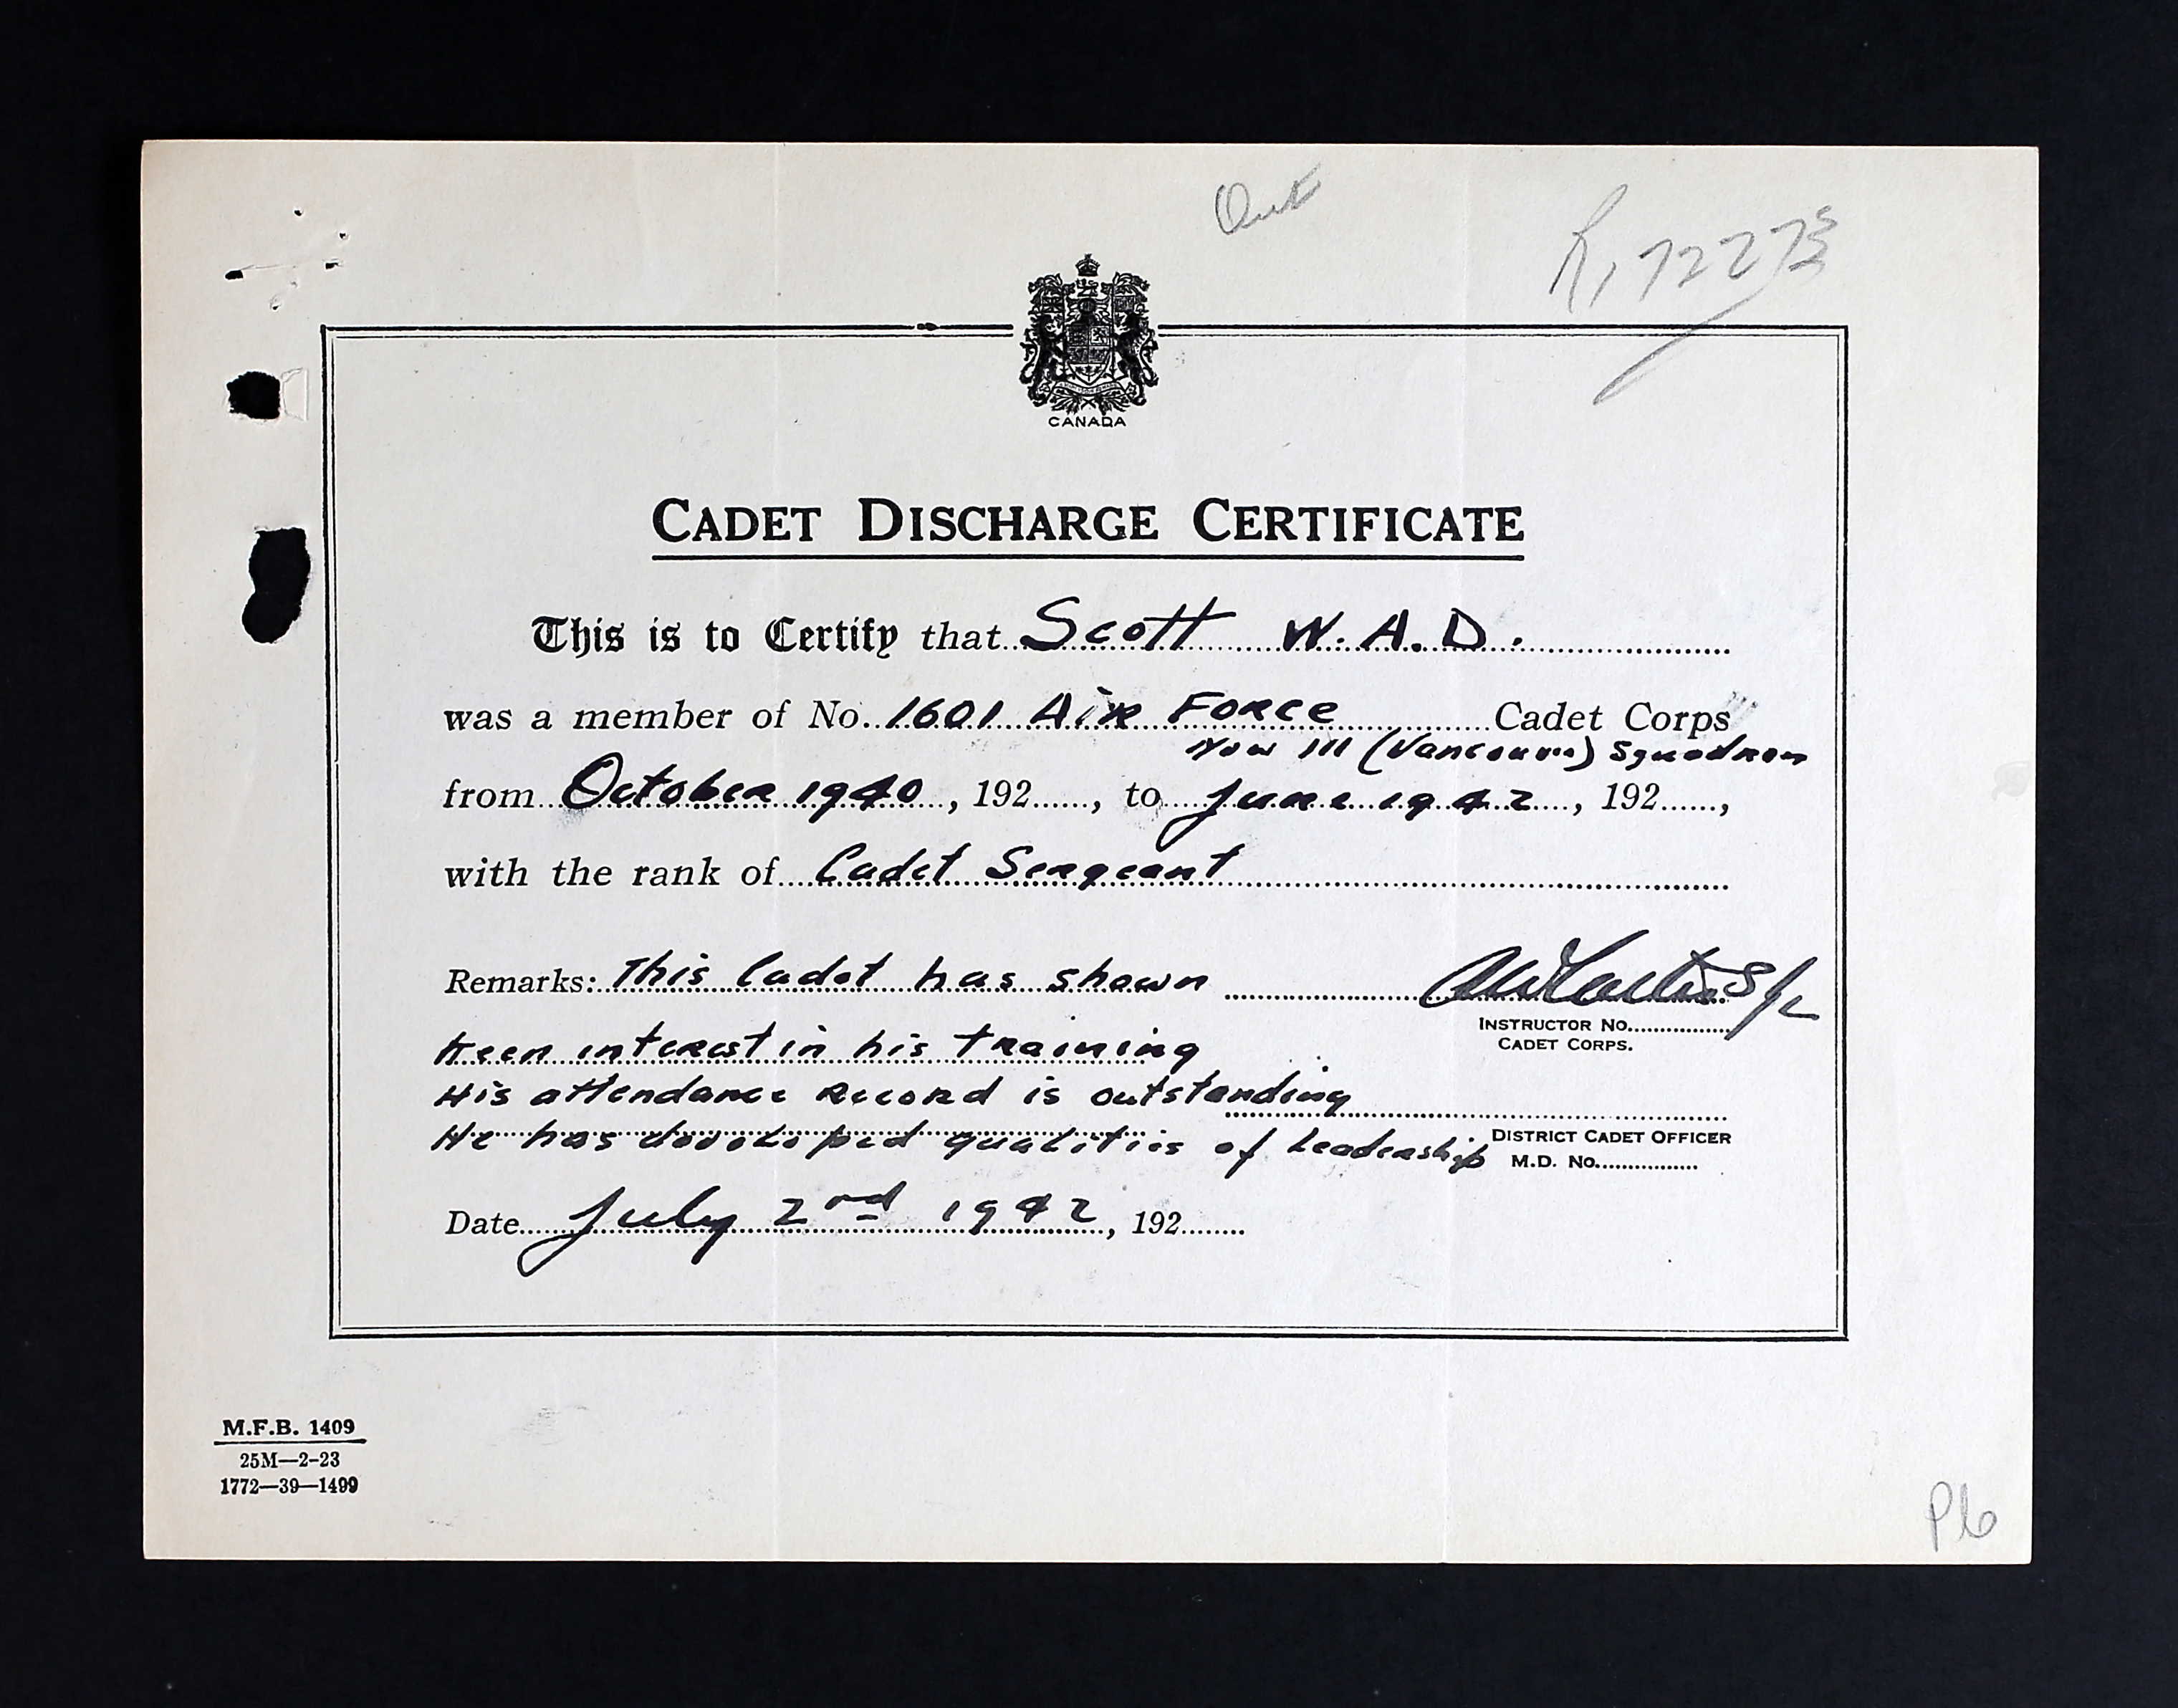 Out
CANADA
CADET DISCHARGE CERTIFICATE
This is to Certify that Scott W. A. D.
was a member of No. 1601 Air Force Cadet Corps
Now 111 (Vancouver) Squadron
from October 1940, 192......, to June 1942, 192......,
with the rank of Cadet Sergeant
Remarks: This Cadet has shown
INSTRUCTOR NO.
CADET CORPS.
keen interest in his training
His attendance record is outstanding
He has developed qualities of Leadership
DISTRICT CADET OFFICER
M.D. NO.
Date July 2nd 1942, 192
M.F.B. 1409
25M—2-23
1772—39—1499
P6